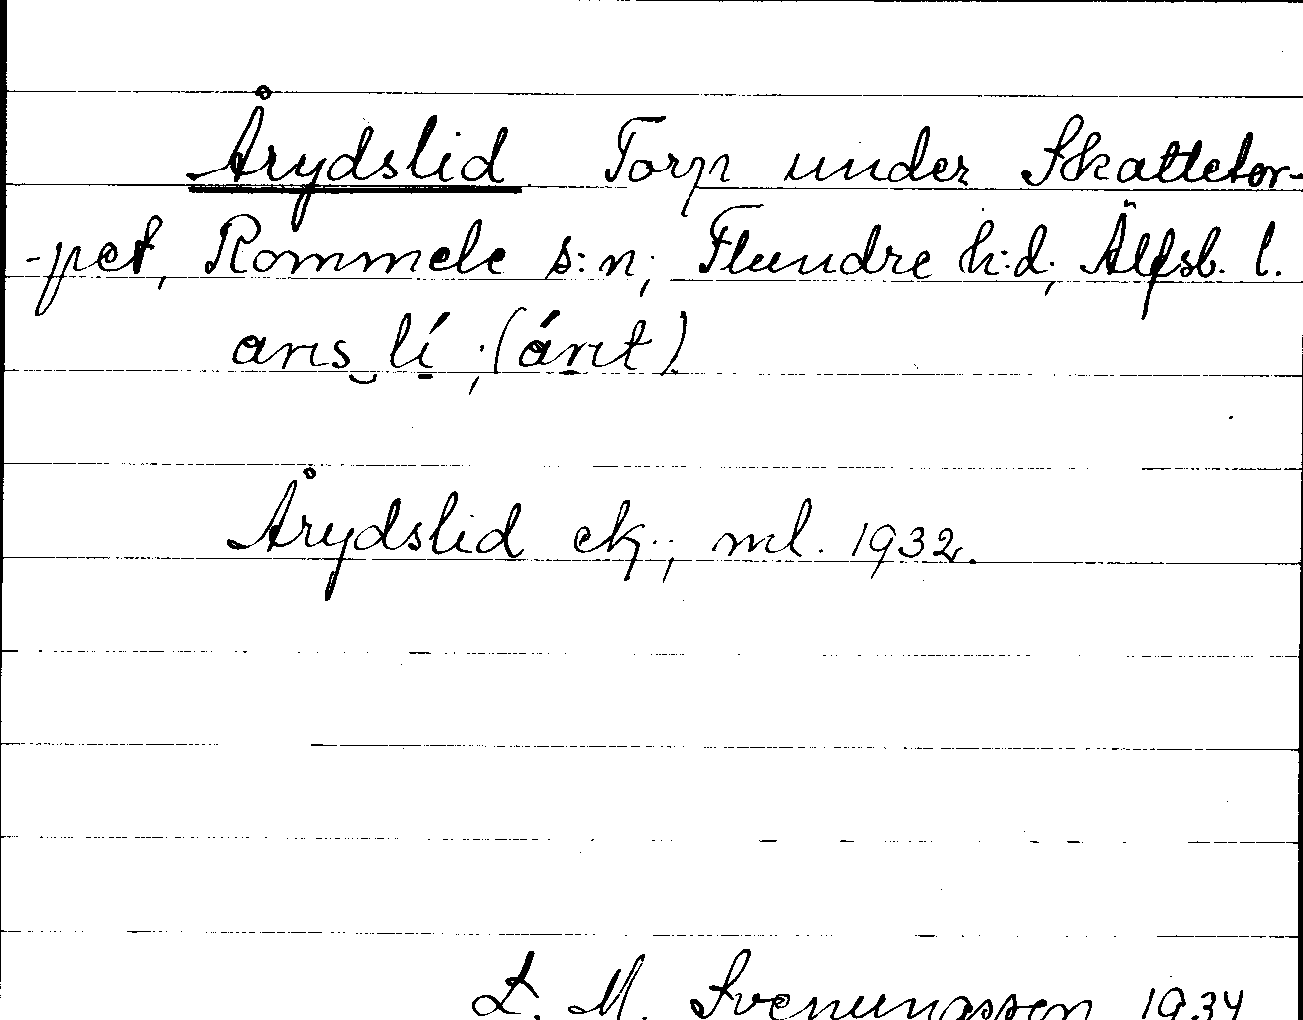 Årydslid Torp under Skattetor-
-pet, Rommele s:n, Flundre h:d, Älfsb. l.
Årydslid ek., ml. 1932.
L. M. Svenungsson 1934